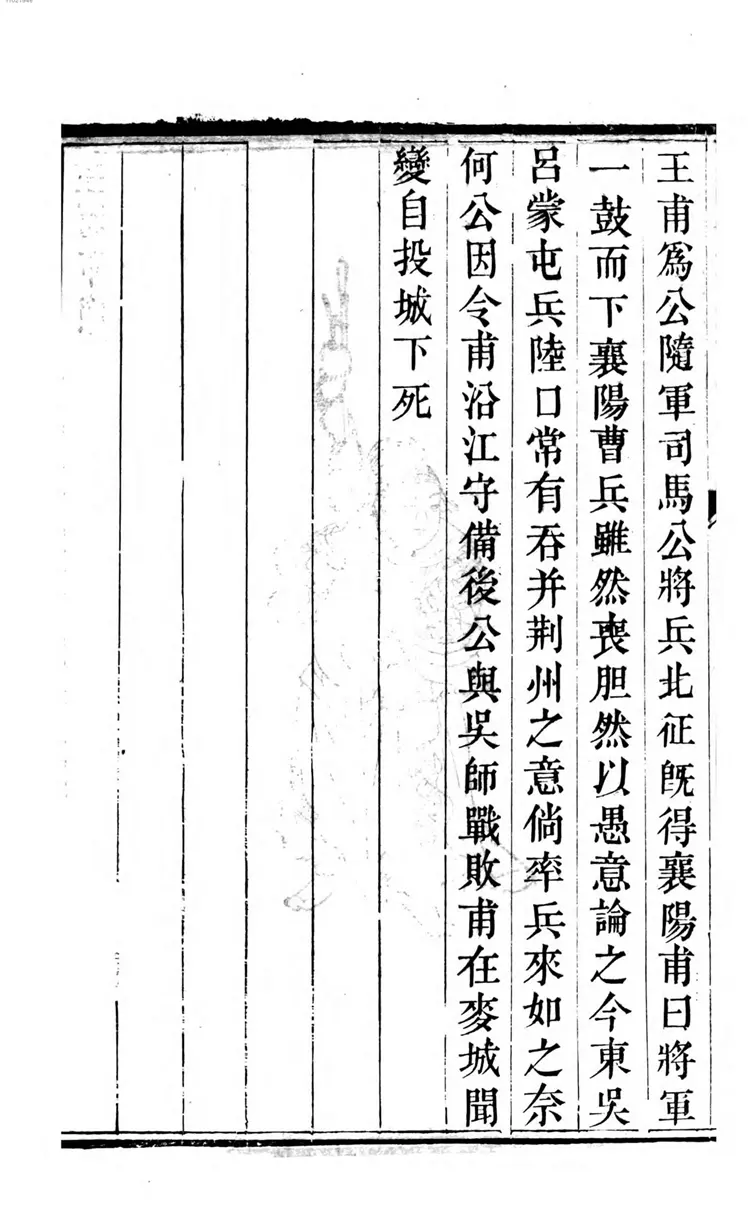 王甫爲公隨軍司馬公將兵北征旣得襄陽甫曰將軍
一鼓而下襄陽曹兵雖然喪胆然以愚意論之今東吳
呂蒙屯兵陸口常有吞并荆州之意倘率兵來如之奈
何公因令甫沿江守備後公與吳師戰敗甫在麥城聞
變自投城下死